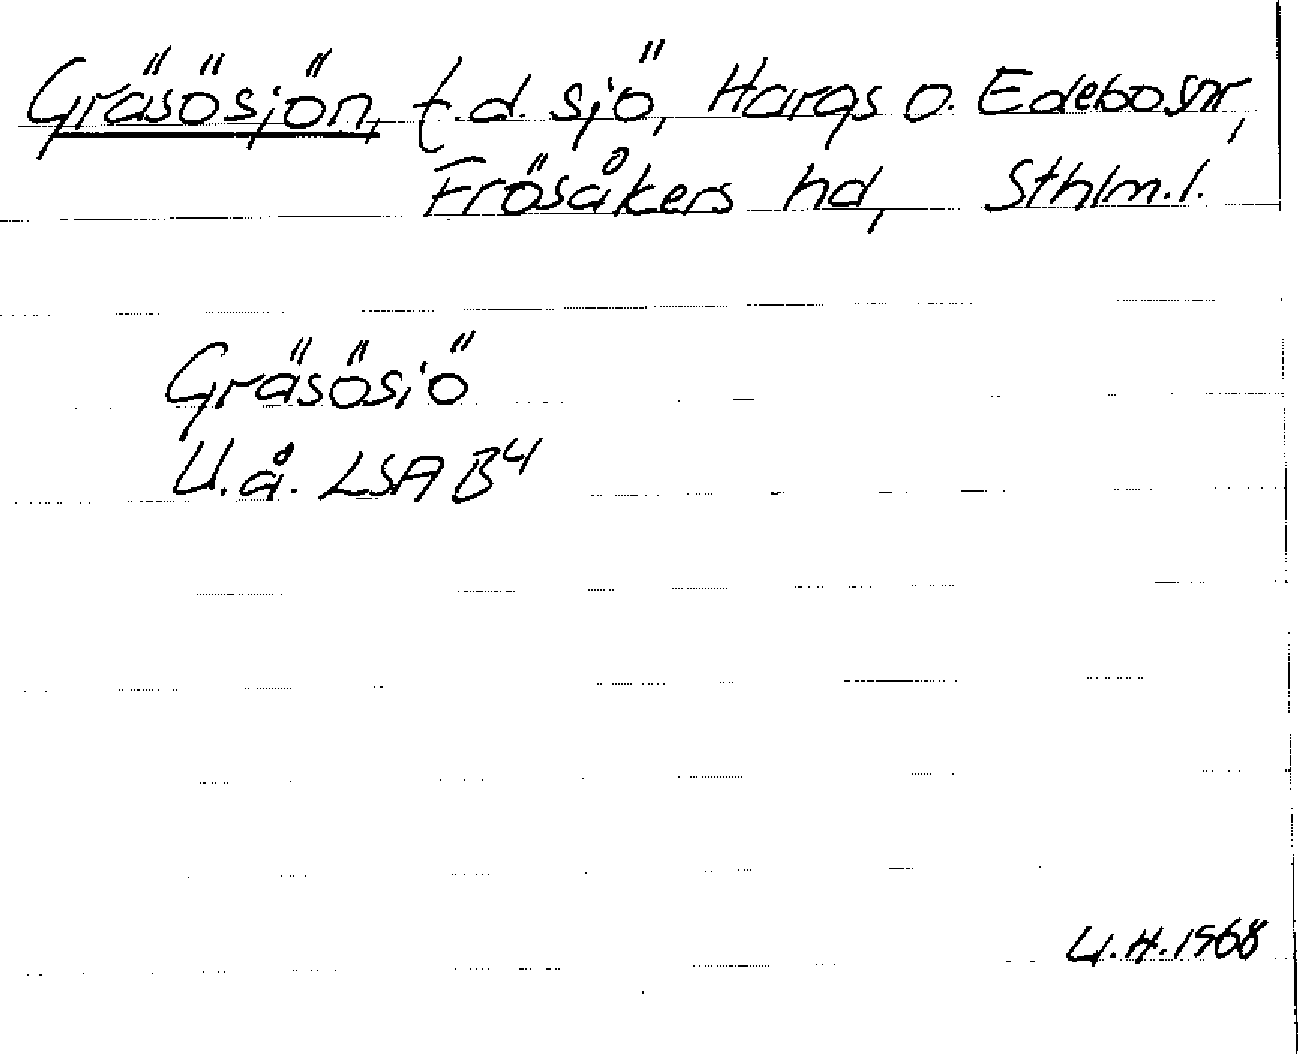 Gräsösjön, f.d. sjö, Hargs o. Edebo snr,
Frösåkers hd, Sthlm.l.
Gräsösiö
U.å. LSA B4
U.H. 1968